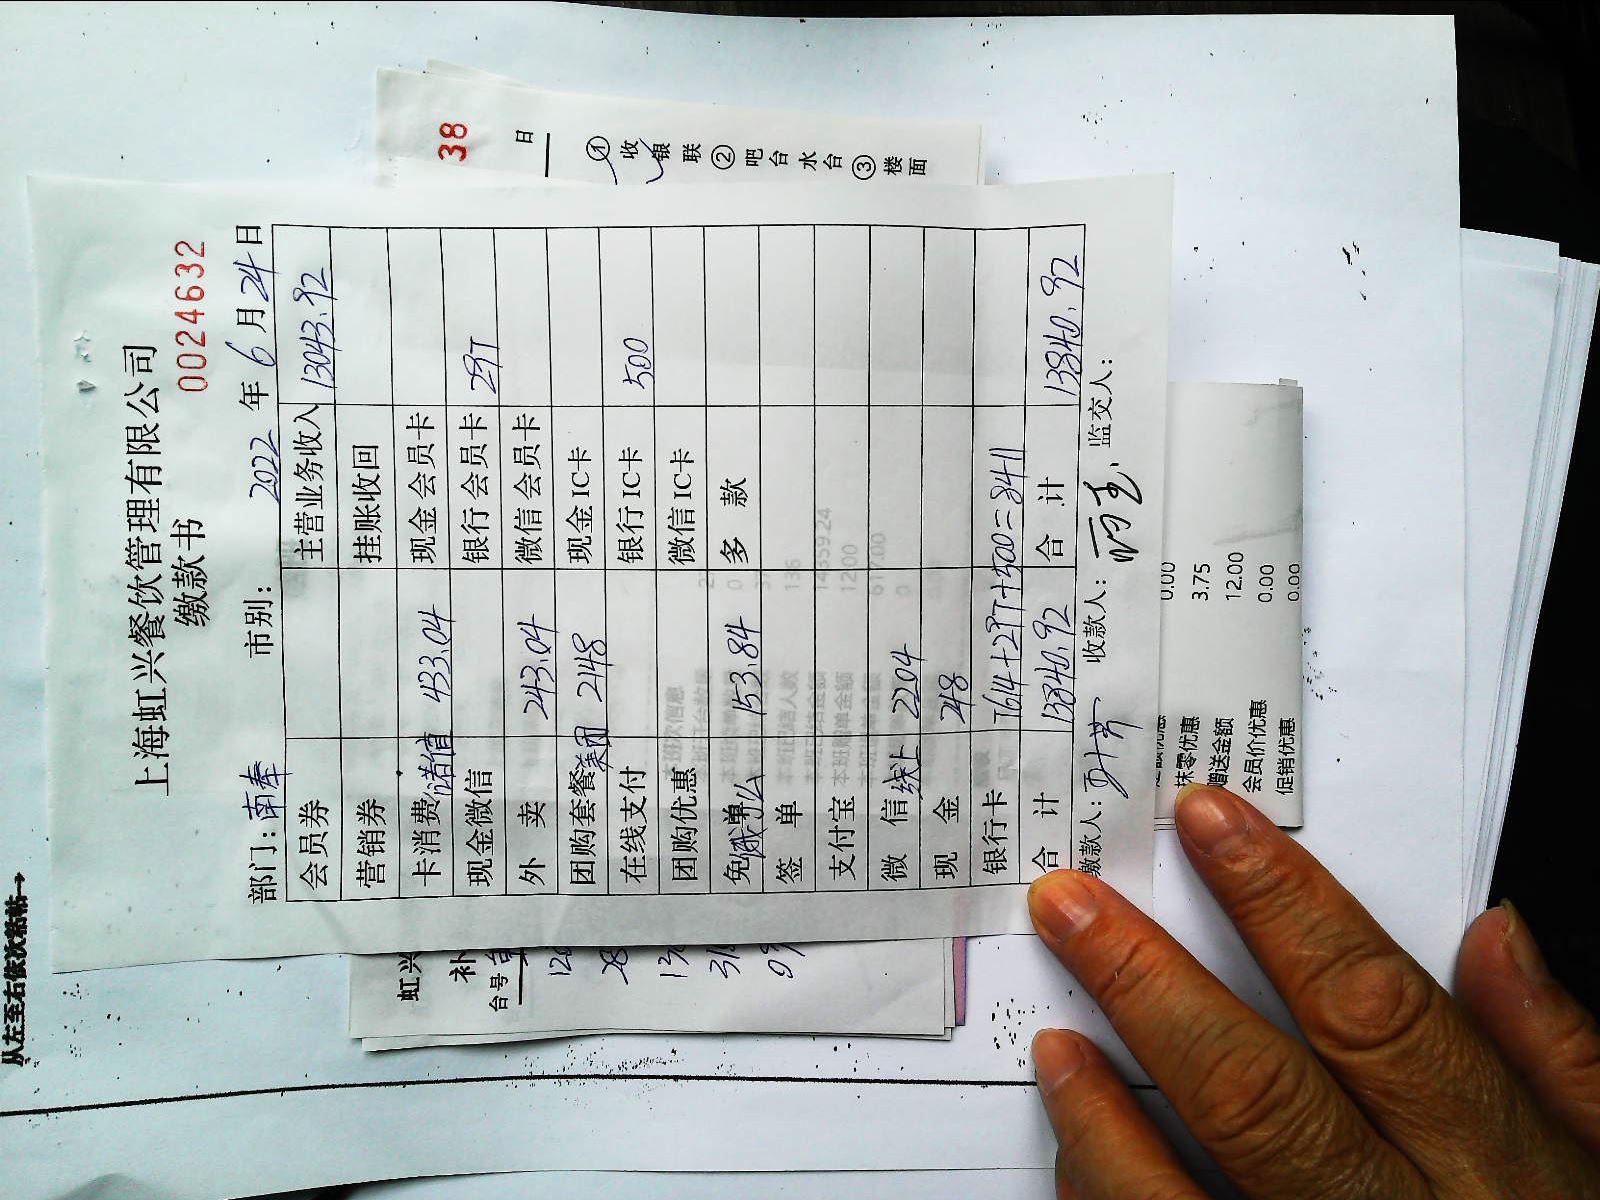 从左至右依次粘帖→
38
日
①收银联②吧台水台③楼面
上海虹兴餐饮管理有限公司
缴款书 0024632
部门：南奉 市别： 2022 年 6 月 24 日
会员券 主营业务收入 13043.92
营销券 挂账收回
卡消费 诺值 433.04 现金会员卡
现金微信 银行会员卡 297
外卖 243.04 微信会员卡
团购套餐 美团 2148 现金IC卡
在线支付 银行IC卡 500
团购优惠 微信IC卡
免 单 153.84 多款
签单
支付宝
微信 线上 2204
现金 248
银行卡 7614+297+500=8411
合计 13840.92 合计 13840.92
缴款人： 收款人： 监交人：
虹兴
补
台号
0.00
抹零优惠 3.75
赠送金额 12.00
会员价优惠 0.00
促销优惠 0.00